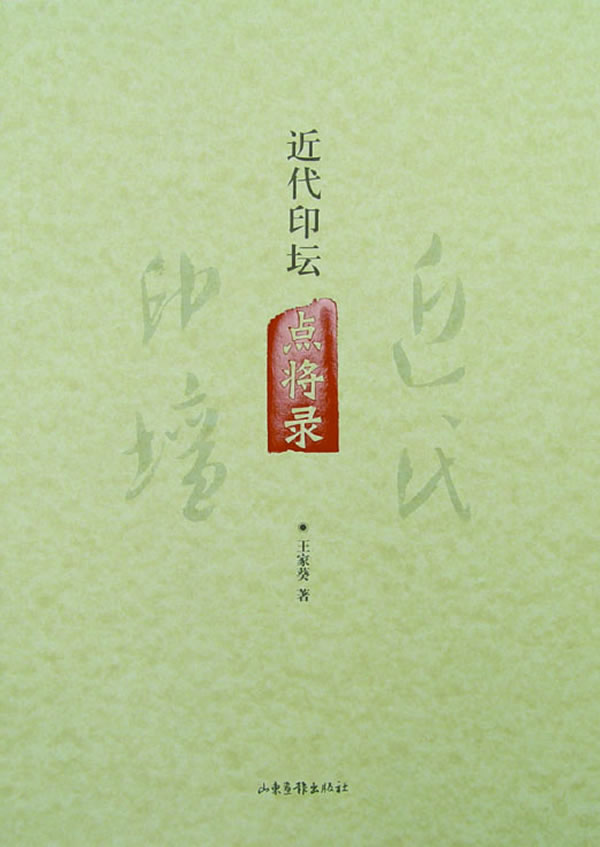 近代印坛
点将录
近代
印壇
王家葵 著
山东画报出版社